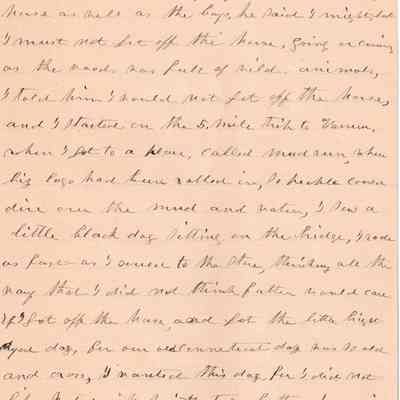 horse as well as the boys, he said I might, but
I must not get off the horse, going or coming
as the woods was full of wild animals,
I told him I would not get off the horse,
and I started on the 5 mile trip to
when I got to a place, called mud run, when
big logs had been rolled in, so people could
dive over the mud and water, I saw a
little black dog sitting on the bridge, I rode
as fast as I could to the store, thinking all the
way that I did not think father would care
if I got off the horse, and got the little
eyed dog, for our old Connecticut dog was so old
and cross, I wanted this dog for I did not